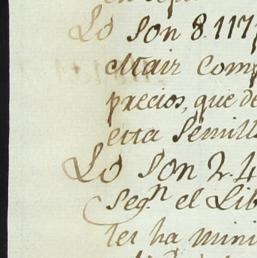 Lo son 8.117
Mair Comp
precios, que de
esta Semill
Lo son 2.4
Segn el Lib
les ha mini